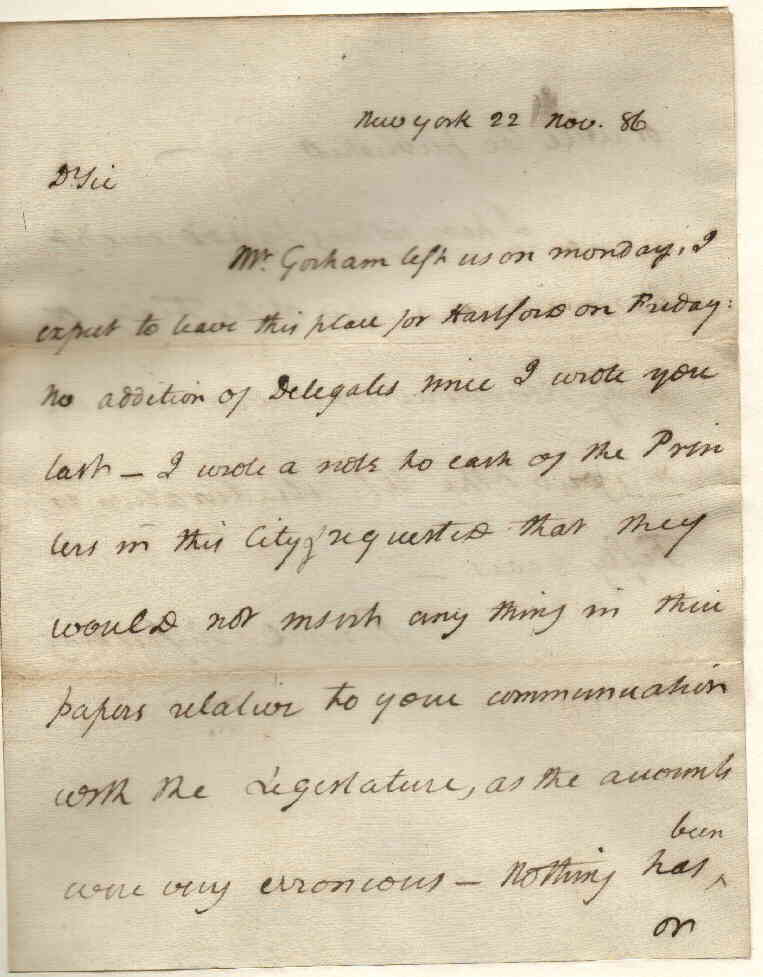 New york 22 Nov. 86
Dr Sir
Mr. Gorham left us on monday, I
expect to leave this place for Hartford on Friday:
No addition of Delegates since I wrote you
last — I wrote a note to each of the Prin
ters in this City & requested that they
would not insert any thing in their
papers relative to your communication
with the Legislature, as the accounts
were very erroneous — Nothing has ^ been
or